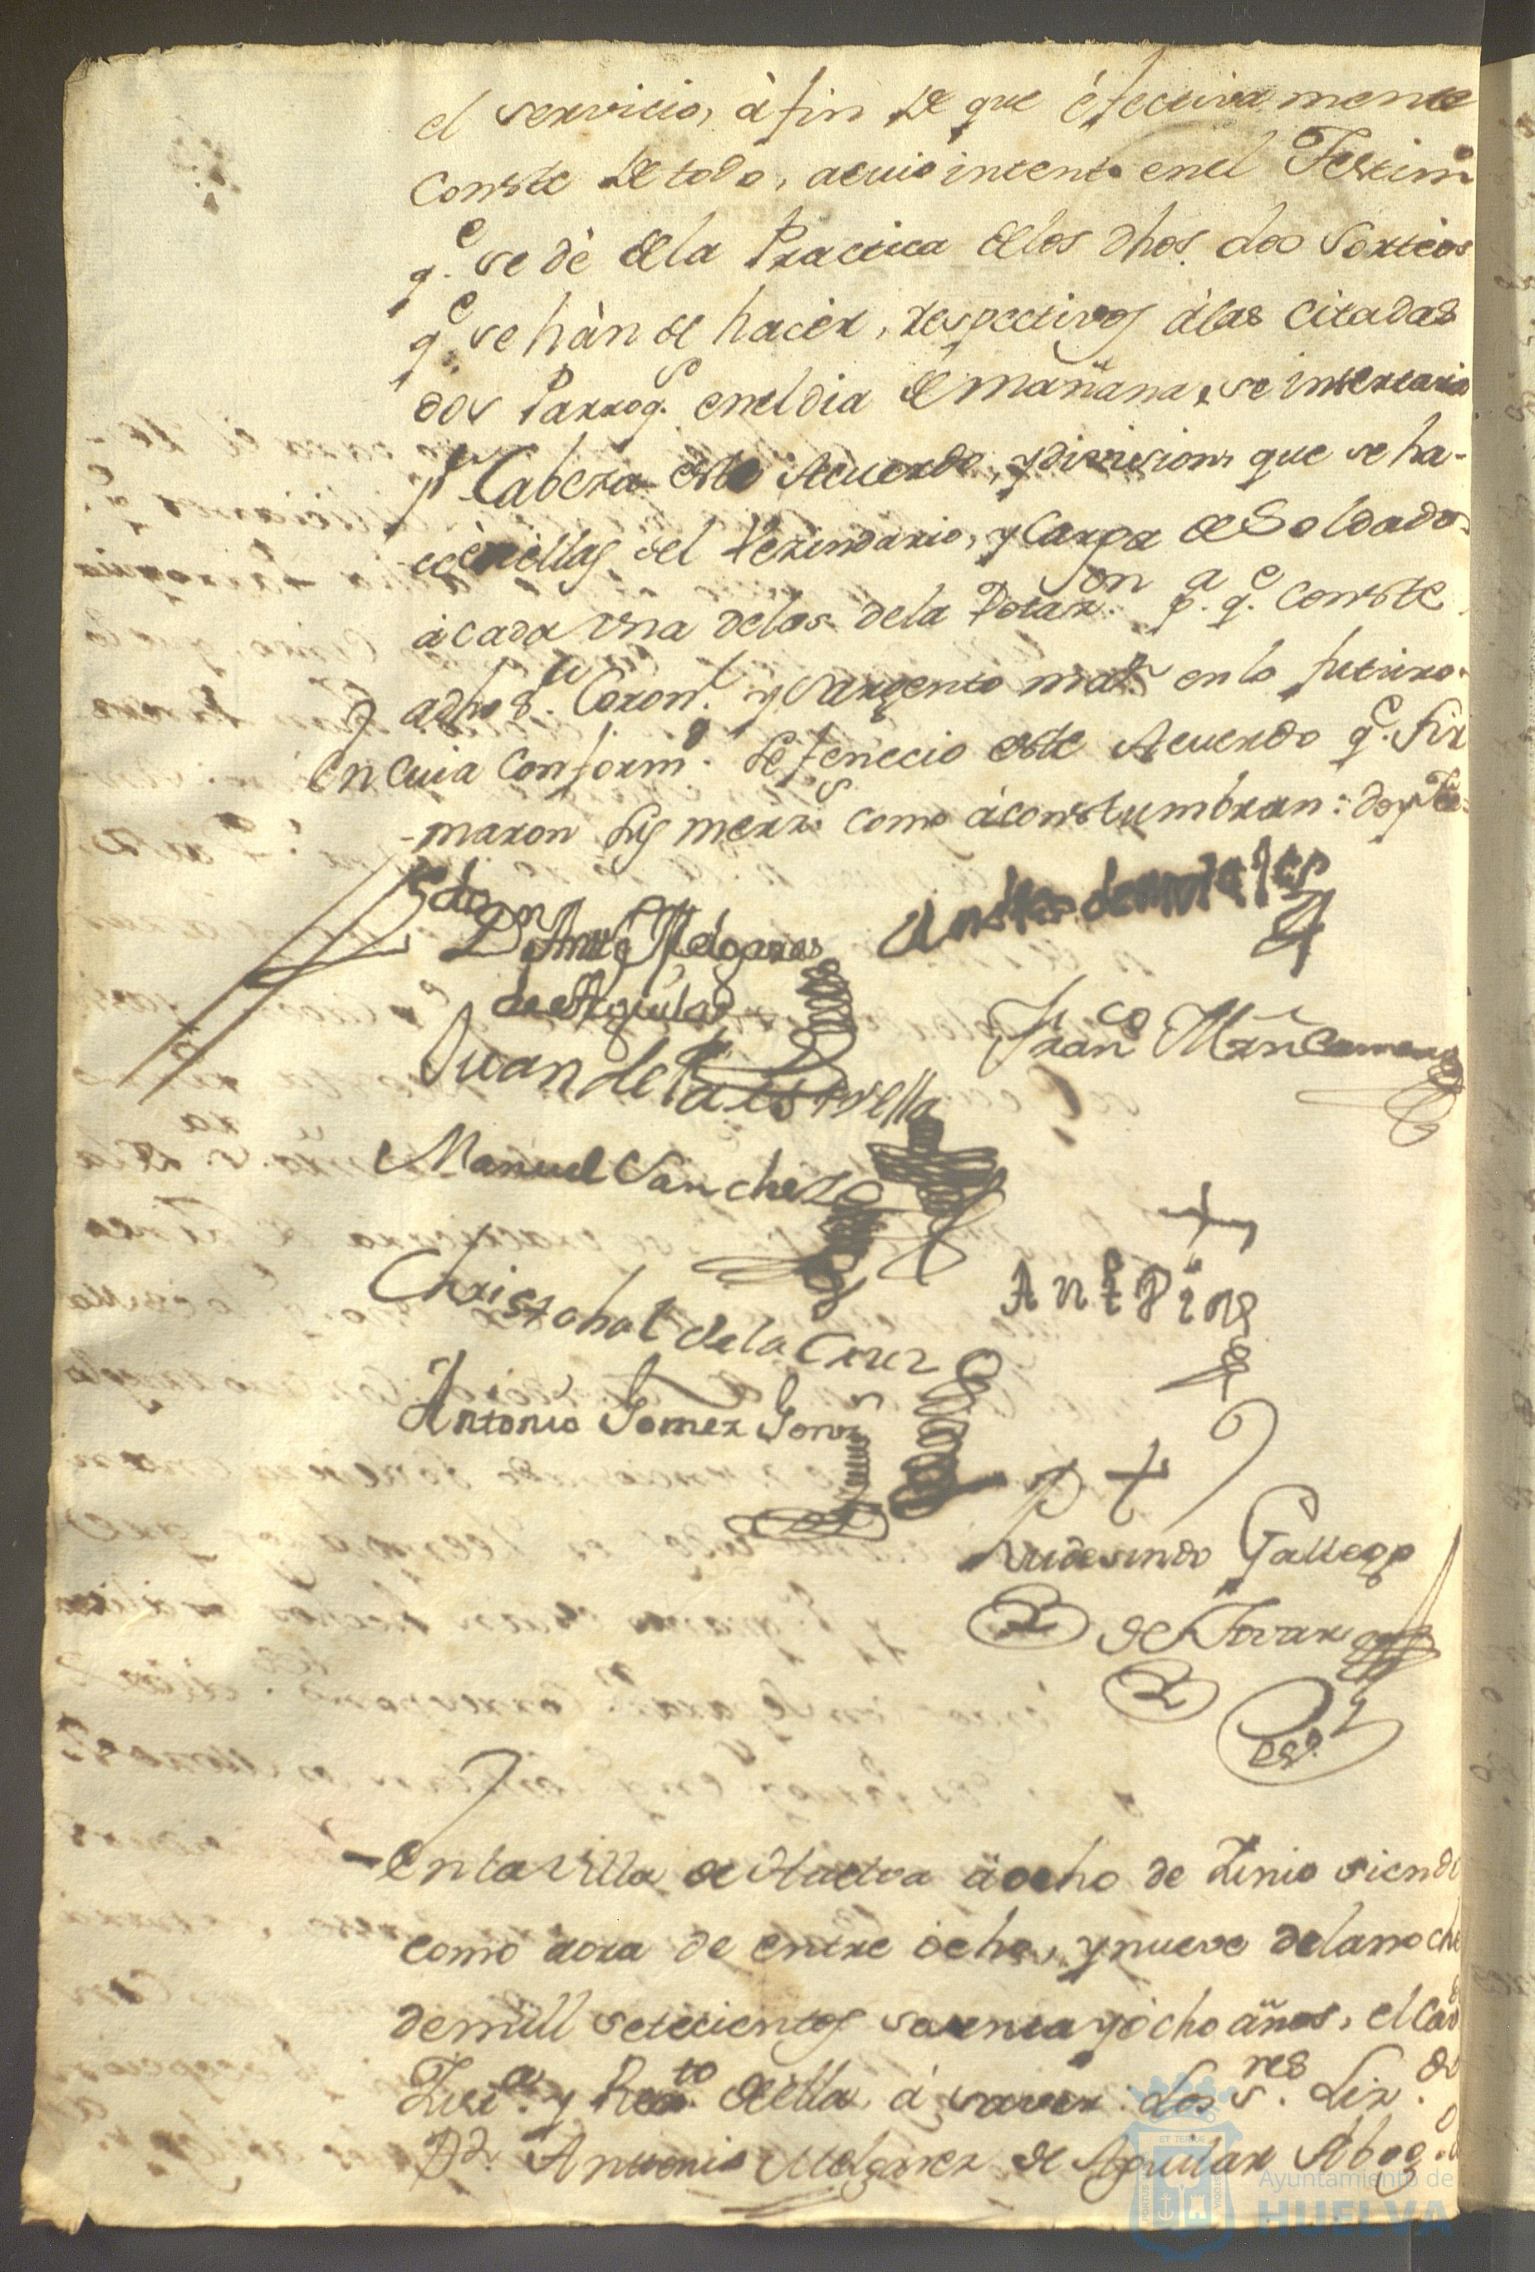 el servicio, à fin de que èfectiva mente
conste de todo, acuio intento enel Testim.º
q.e se dè dela Practica delos dhos. dos Sorteos
q.e se hàn de hacèr, respectivos àlas citadas
dos Parroq.s enel dia de mañana, se insertaria
p.r Cabeza este Acuerdo, y division, que se ha-
ce en ellas del Vezindario, y Carga de Soldado.
à cada una delas dela Dotaz.on p.a q.e conste
y adho S.or Coron.l y Sargento maì.r en lo futuro.
en cuia conform.d se fenecio este Acuerdo q.e fir
-maron sus merz.s como àcostumbran: doy Fee.
Lizdo
Dn Antt.o Melgarez
de Aguilar
Andres de morales
Juan de la estrella
Franco Mrn Camero
Manuel Sanchez
Christobal de la Cruz
Ant Pino
Antonio Gomez Gonz
Rudesindo Gallego
de Tovar
es.no
En la Villa de Huelva à ocho de Iunio siendo
como aora de entre ocho, y nueve dela noche
de mill setecientos sesenta y ocho años, el Cav.
Iust.a y Rex.to de ella, à saver: los s.res Liz.do
Dn. Antonio Melgarez de Aguilar Abog.do
Ayuntamiento de
HUELVA